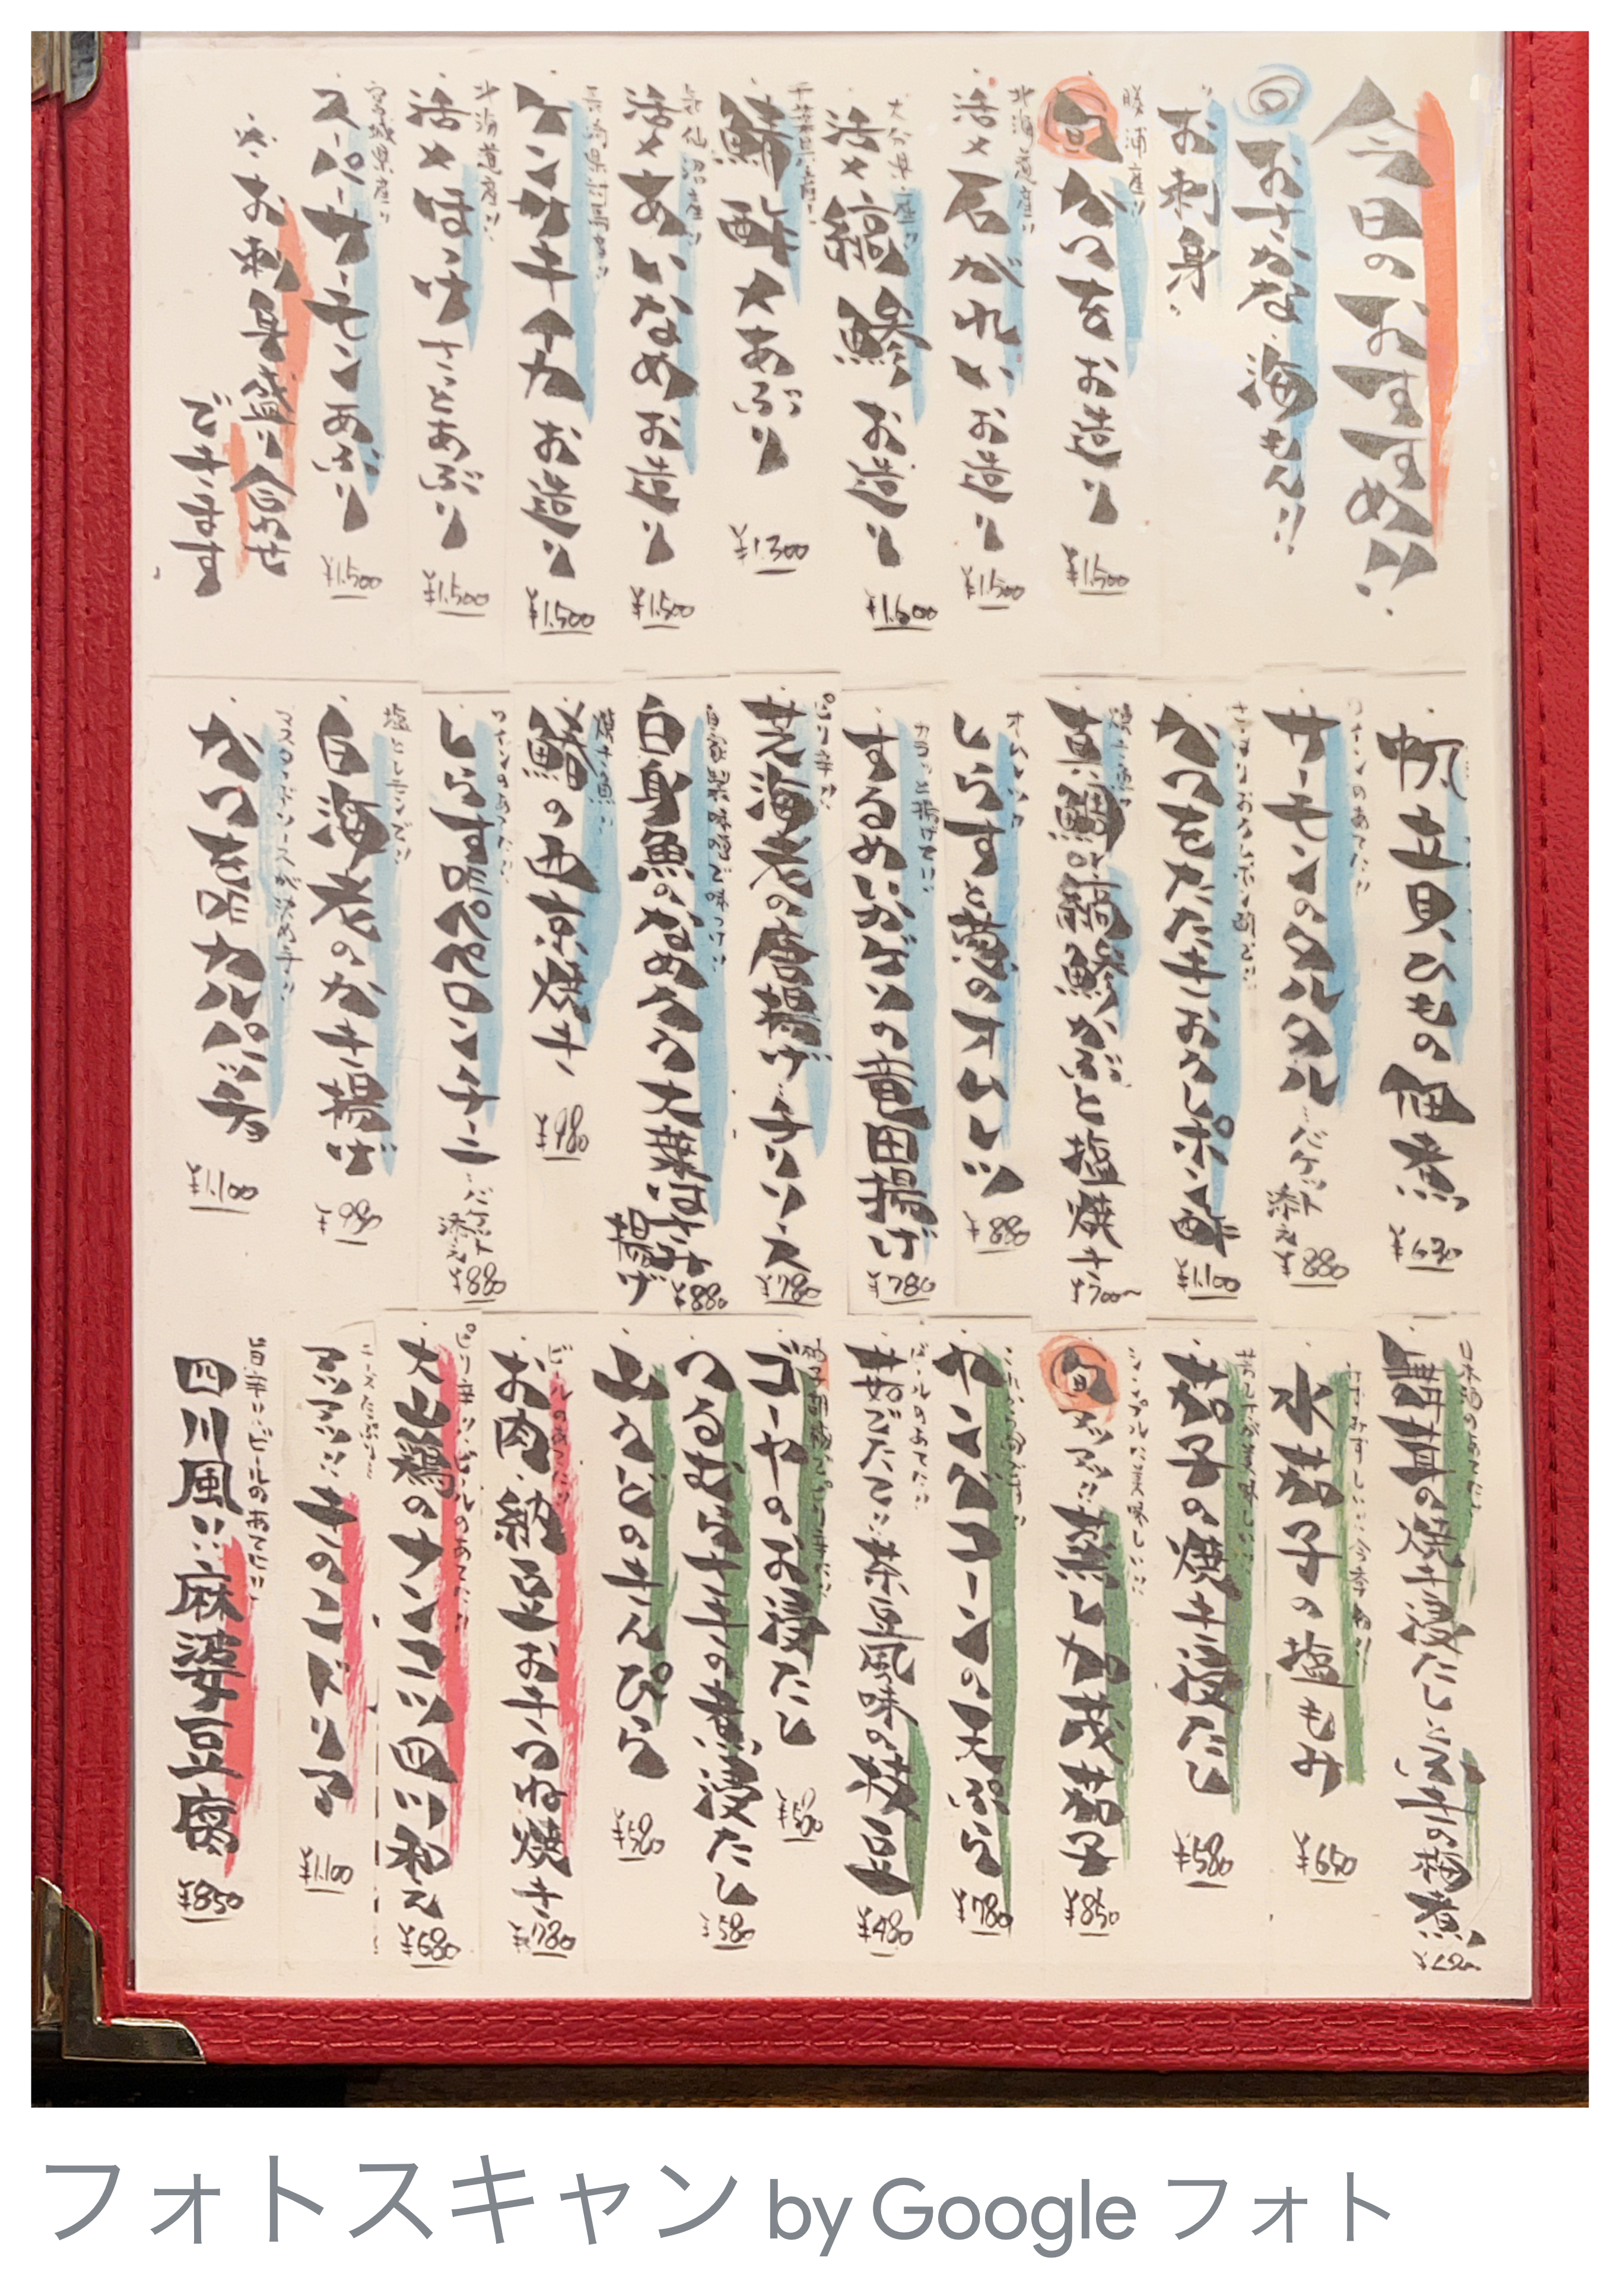 今日のおすすめ!!
おさかな 海もん!!
お刺身
勝浦産!!
旬 かつをお造り
¥1.500
北海道産!!
活〆石がれいお造り
¥1.500
大分県産!!
活〆縞鯵お造り
¥1.600
千葉県産!!
鯖 酢〆あぶり
¥1.300
気仙沼産!!
活〆あいなめお造り
¥1.500
長崎県対馬産!!
ケンサキイカお造り
¥1.500
北海道産!!
活〆ほっけさっとあぶり
¥1.500
宮城県産!!
スーパーサーモンあぶり
¥1.500
お刺身盛り合わせ
できます
帆立貝ひもの佃煮
¥630
ワインのあてに!!
サーモンのタルタル
バケット添え
¥880
かつをたたきおろしポン酢
¥1.100
焼き魚!!
真鯛、縞鯵かぶと塩焼き
¥700〜
オムレツ!!
しらすと葱のオムレツ
¥880
カラッと揚げた!!
するめいかゲソの竜田揚げ
¥780
ピリ辛!!
芝海老の唐揚げチリソース
¥780
自家製味噌で味つけ!!
白身魚のなめろう大葉はさみ揚げ
¥880
焼き魚!!
鰆の西京焼き
¥980
ワインのあてに!!
しらすペペロンチーニ
バケット添え
¥880
塩とレモンで!!
白海老のかき揚げ
¥980
マスタードソースが決め手!!
かつをカルパッチョ
¥1.100
日本酒のあてに!!
舞茸の焼き浸し
水茄子の塩もみ
¥650
茄子の焼き浸たし
¥580
シンプルに美味しい!!
旬 アツアツ!! 蒸し加茂茄子
¥850
ヤングコーンの天ぷら
¥780
ビールのあてに!!
茹でたて!! 茶豆風味の枝豆
¥480
ゴーヤのお浸たし
¥580
つるむらさきの煮浸たし
¥580
山うどのきんぴら
¥580
ビールのあてに!!
お肉、納豆お手つね焼き
¥780
ピリ辛!!ビールのあてに!!
大山鶏のナンコツ四川和え
¥680
チーズたっぷり!!
アツアツ!! チキンのドリア
¥1.100
旨辛!!ビールのあてに!!
四川風!! 麻婆豆腐
¥850
フォトスキャン by Google フォト